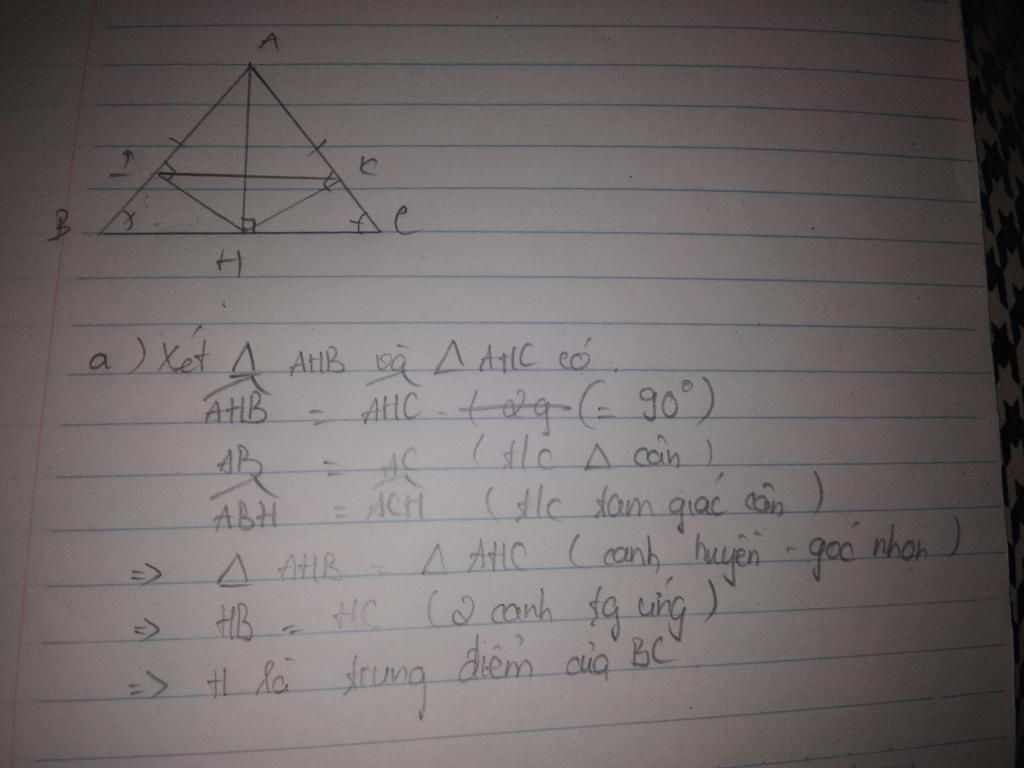 A
I
K
B
C
H
a) Xét Δ AHB và Δ AHC có.
AHB = AHC (= 90°)
AB = AC (t/c Δ cân)
ABH = ACH (t/c tam giác cân)
=> Δ AHB = Δ AHC (cạnh huyền - góc nhọn)
=> HB = HC (2 cạnh tg ứng)
=> H là trung điểm của BC